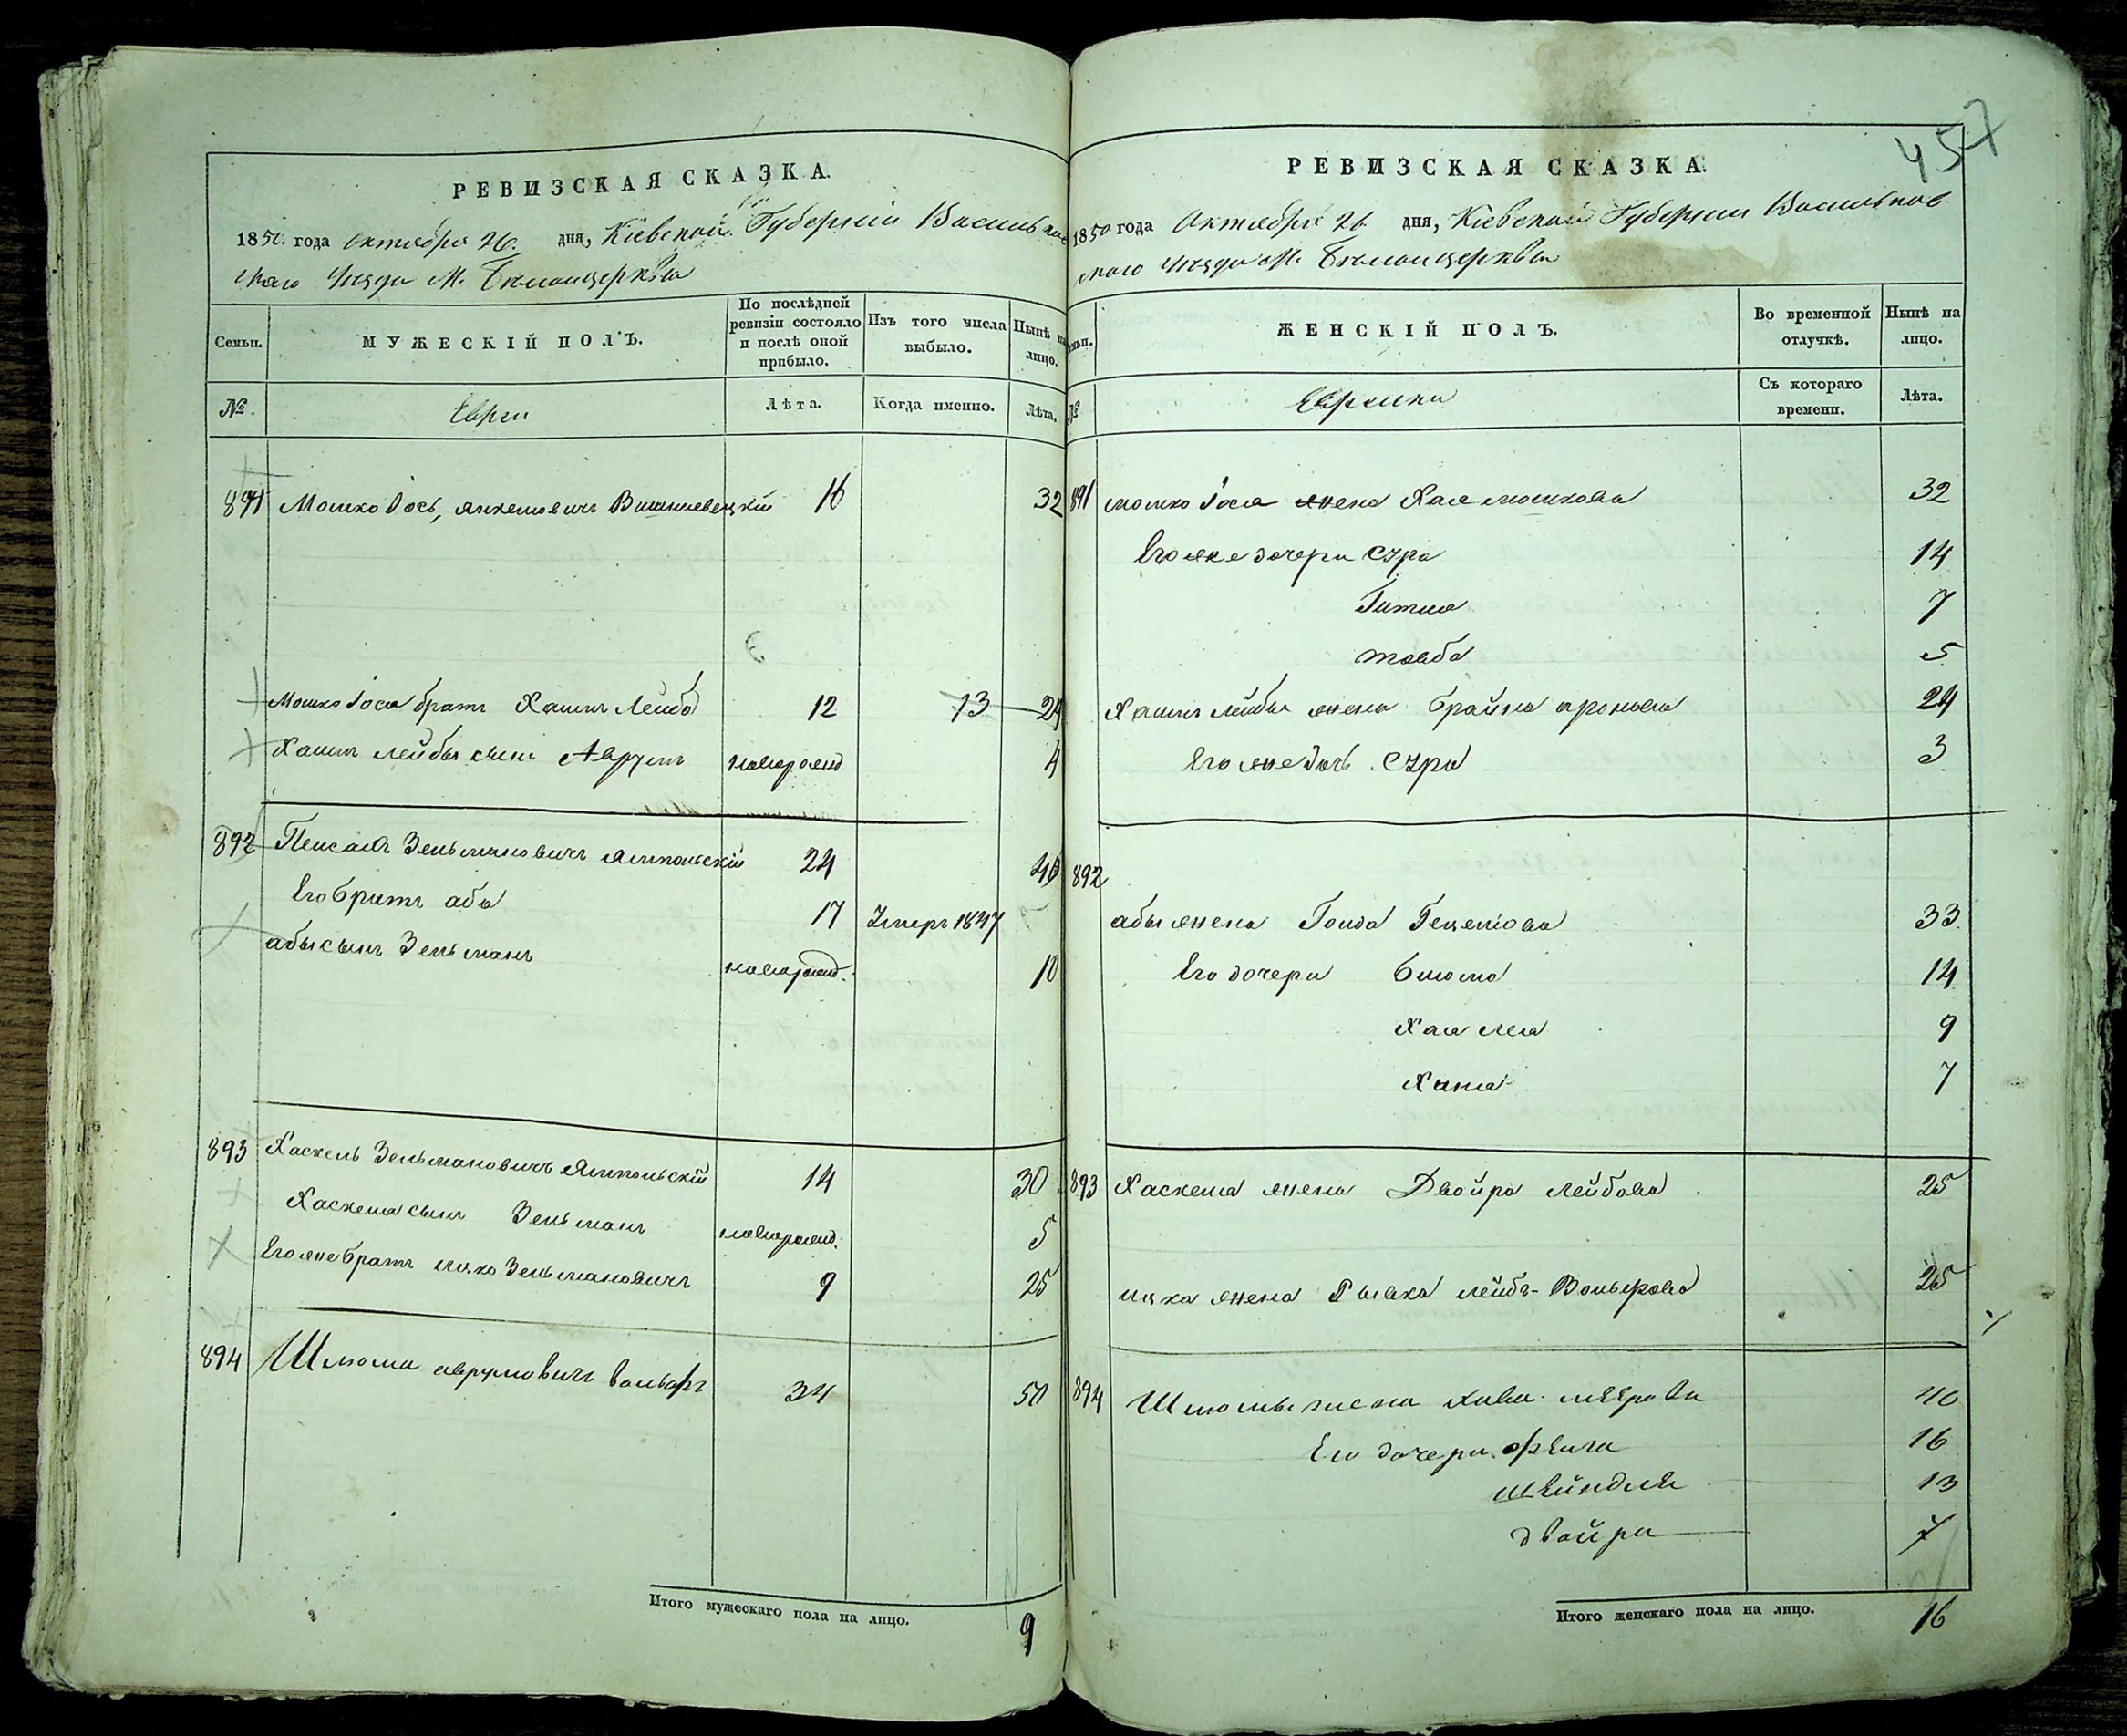 457
РЕВИЗСКАЯ СКАЗКА.
1850. года Октября 26. дня, Кіевской Губерніи Васильков
скаго Уезда М. Белоцерквы
Семьи. МУЖЕСКІЙ ПОЛЪ. По послѣдней ревизіи состояло и послѣ оной прибыло. Изъ того числа выбыло. Нынѣ на лицо.
№ Евреи Лѣта. Когда именно. Лѣта.
891 Мошко Іось, Янкелевичъ Вишневецкій 16 32
Мошко Іося братъ Хаимъ Лейба 12 13 24
Хаимъ Лейбы сынъ Аврумъ новорожд 4
892 Пейсахъ Зельмановичъ Ямпольскій 24 40
Его братъ аба 17 Умеръ 1847
абы сынъ Зельманъ новорожд. 10
893 Хаскель Зельмановичъ Ямпольскій 14 30
Хаскеля сынъ Зельманъ новорожд. 5
Его же братъ Ицко Зельмановичъ 9 25
894 Шлиома аврумовичъ Вольфъ 34 50
Итого мужескаго пола на лицо. 9
РЕВИЗСКАЯ СКАЗКА.
1850 года Октября 26 дня, Кіевской Губерніи Васильков
скаго Уезда М. Белоцерквы
Семьи. ЖЕНСКІЙ ПОЛЪ. Во временной отлучкѣ. Нынѣ на лицо.
№ Еврейки Съ котораго времени. Лѣта.
891 Мошко Іося жена Хая Мошкова 32
Его же дочери Сура 14
Гитля 7
Товба 5
Хаимъ Лейбы жена Брайна Аронова 24
Его же дочь Сура 3
892
абы жена Голда 33
Его дочери Блюма 14
Хая Лея 9
Хана 7
893 Хаскеля жена Двойра Лейбова 25
Ицка жена Рывка Лейбъ-Вольфова 25
894 Шлиомы жена Хива Меерова 40
Его дочери Фейга 16
Шейндля 13
Двойра 7
Итого женскаго пола на лицо. 16